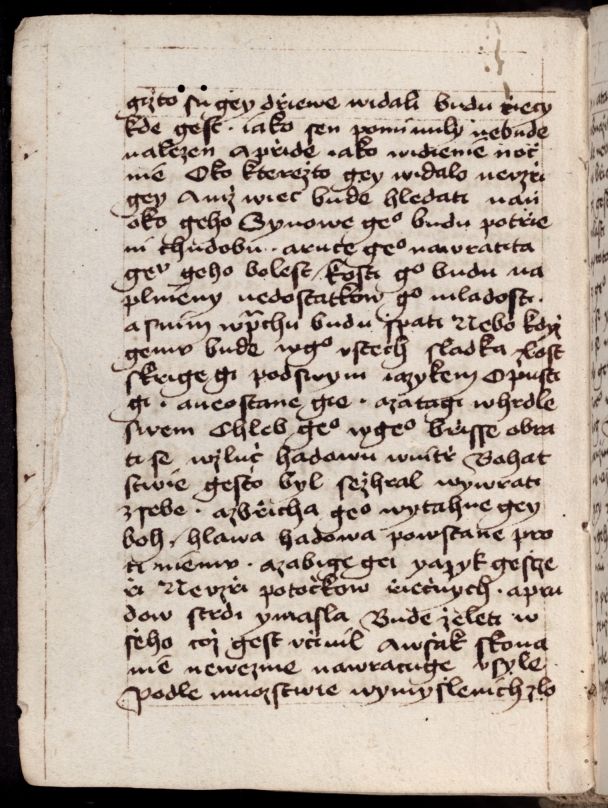 gižto sú gey dřiewe widali budu řiecy
kde gest · iako sen pominuly nebude
nalezen A přide iako widienie noč
nie Oko kterežto gey widalo neuzři
gey Aniž wiec bude hledati naň
oko geho Synowe geº budu potřie
ni chudobu · a ruce geº nawratita
gey geho bolest kosti gº budu na
plnieny nedostatkow gº mladosti ·
a s nim w prchu budu spati Nebo když
gemu bude w gº ustech sladka zlost
skrige gi pod swym iazykem Opusti
gi · a neostane gie · a zatagi w hrdle
swem Chleb geº w geº břisse obra
ti se w zluč hadowu wnitř Bohat
stwie gesto byl sežhral wywrati
z sebe · a z břicha geº wytahne gey
boh · hlawa hadowa powstane pro
ti niemu · a zabige gei yazyk geštie
ři Neuzři potočkow řiečnych · a pru
dow strdi y masla Bude želeti w
šeho což gest učinil Awšak skona
nie newezme nawracuge usyle
Podle mnozstwie wymyslenich zlo